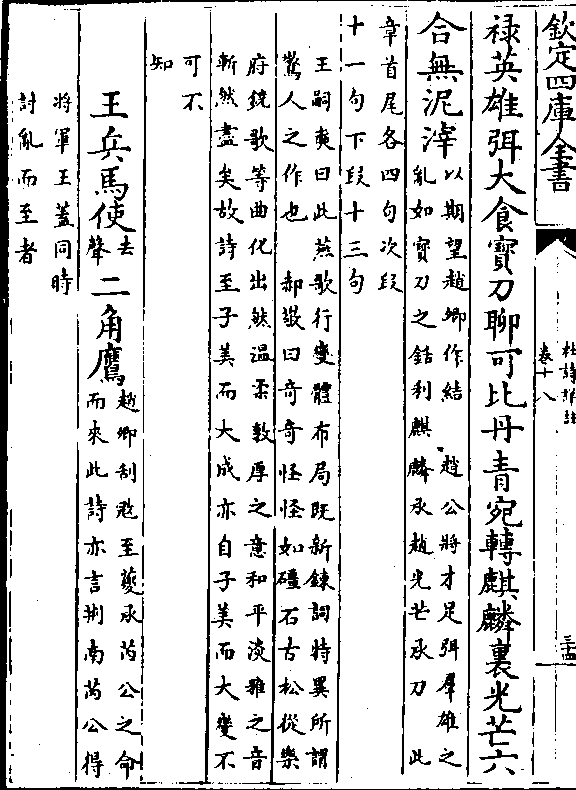 欽定四庫全書
杜詩詳註
卷十八
三十四
祿英雄弭大食寶刀聊可比丹青宛轉麒麟裏光芒六
合無泥滓
以期望趙卿作結　趙公將才足弭羣雄之
亂如寶刀之銛利麒麟承趙光芒承刀　此
章首尾各四句次段
十一句下段十三句
王嗣奭曰此蕪歌行變體布局既新鍊詞特異所謂
驚人之作也　郝敬曰奇奇怪怪如礓石古松從樂
府鐃歌等曲化出然温柔敦厚之意和平淡雅之音
斬然盡矣故詩至子美而大成亦自子美而大變不
可不
知
王兵馬使
去
聲
二角鷹
趙卿刮寇至夔承芮公之命
而來此詩亦言荆南芮公得
將軍王蓋同時
討亂而至者